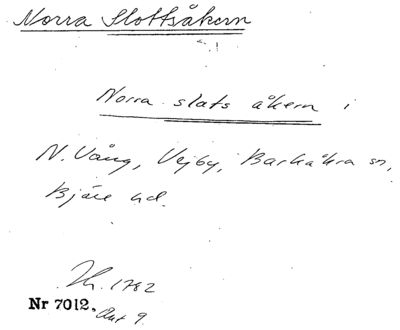 Norra Slottsåkern
Norra slats åkern i
N. Vång, Vejby, Barkåkra sn,
Bjäre hd.
1782
Nr 7012. Akt 9